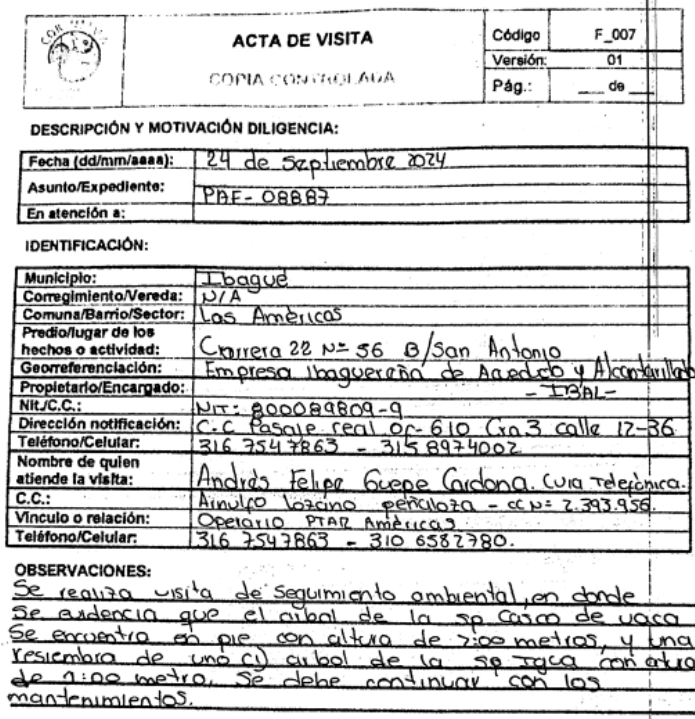 ACTA DE VISITA
COPIA CONTROLADA
Código F_007
Versión: 01
Pág.: ___ de ___
DESCRIPCIÓN Y MOTIVACIÓN DILIGENCIA:
Fecha (dd/mm/aaaa): 24 de Septiembre 2024
Asunto/Expediente: PAF-08887
En atención a:
IDENTIFICACIÓN:
Municipio: Ibagué
Corregimiento/Vereda: N/A
Comuna/Barrio/Sector: Las Américas
Predio/lugar de los
hechos o actividad: Carrera 22 Nº 56 B/San Antonio
Georreferenciación: Empresa Ibaguereña de Acueducto y Alcantarillado
Propietario/Encargado: - IBAL-
Nit./C.C.: NIT: 800089809-9
Dirección notificación: C.C Pasaje real of- 610 Cra 3 calle 12-36
Teléfono/Celular: 316 7547863 - 315 8974002
Nombre de quien
atiende la visita: Andrés Felipe Guepe Cardona. (via Telefónica.
C.C.: Arnulfo lozano peñaloza - cc Nº: 2.393.956.
Vinculo o relación: Operario PTAR Américas
Teléfono/Celular: 316 7547863 - 310 6582780.
OBSERVACIONES:
Se realiza visita de seguimiento ambiental, en donde
se evidencia que el arbol de la sp Casco de vaca
se encuentra en pie con altura de 7:00 metros, y una
resiembra de uno (1) arbol de la sp Igua con altura
de 1:00 metro. Se debe continuar con los
mantenimientos.